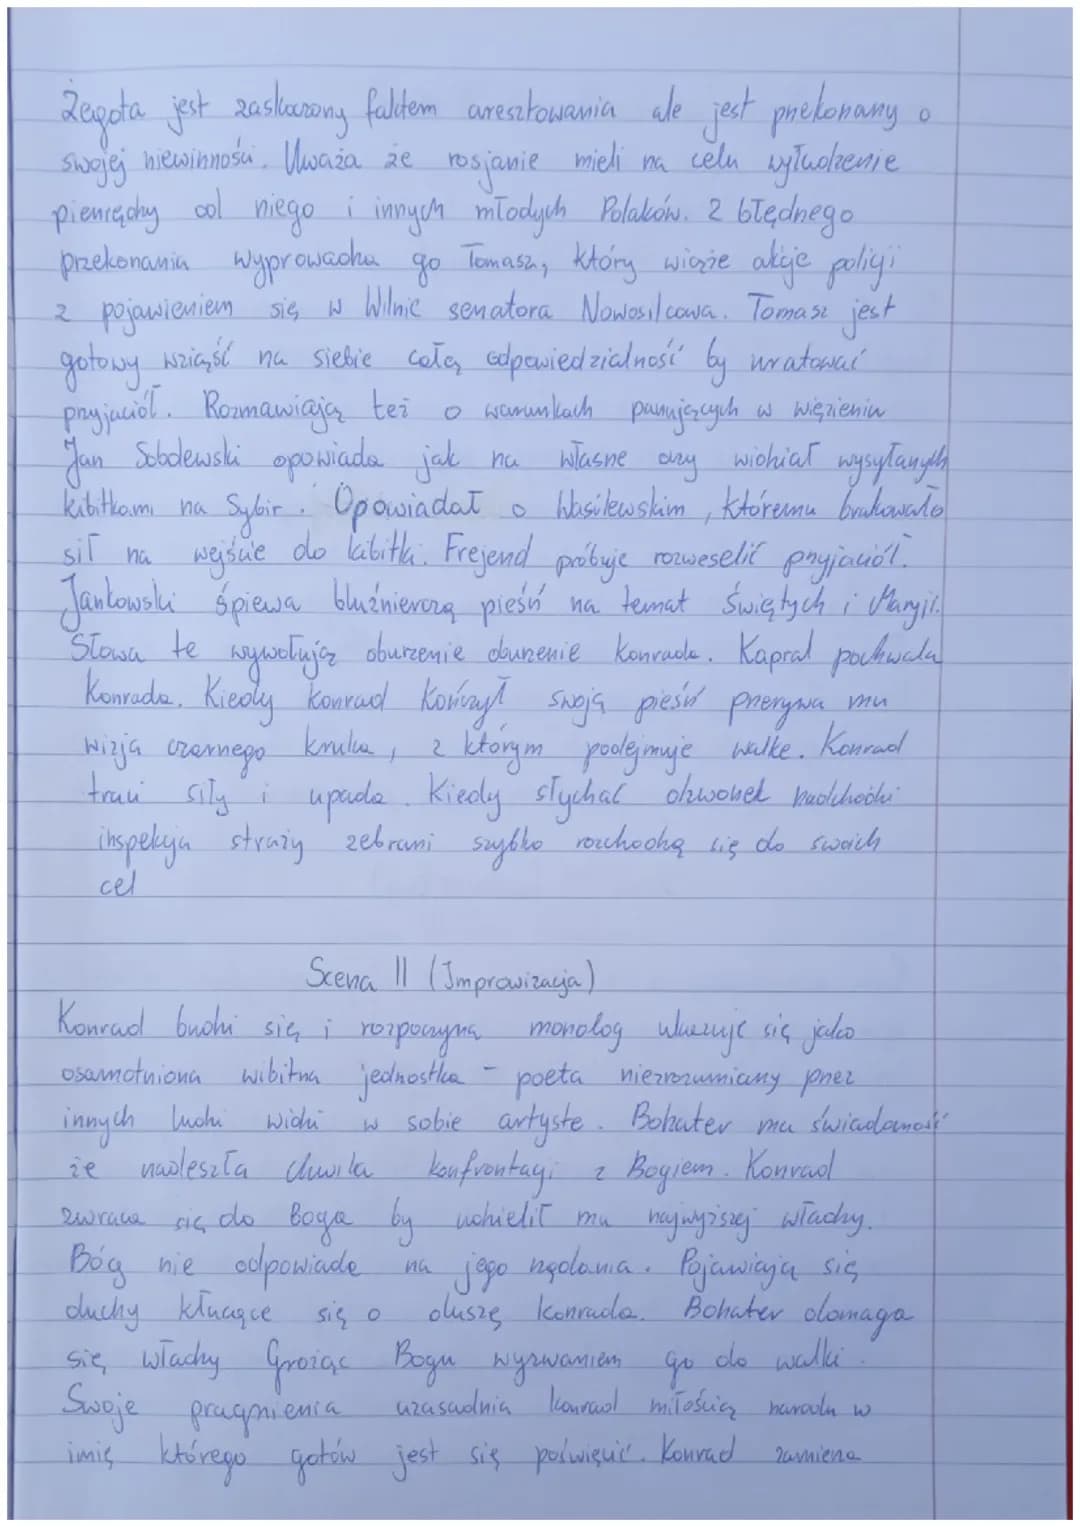 Żegota jest zaskoczony faktem aresztowania ale jest przekonany o
swojej niewinności. Uważa że rosjanie mieli na celu wyłudzenie
pieniędzy od niego i innych młodych Polaków. Z błędnego
przekonania wyprowadza go Tomasz, który wiąże akcje policji
z pojawieniem się w Wilnie senatora Nowosilcowa. Tomasz jest
gotowy wziąść na siebie całą odpowiedzialność by uratować
przyjaciół. Rozmawiają też o warunkach panujących w więzieniu
Jan Sobolewski opowiada jak na własne oczy widział wysyłanych
kibitkami na Sybir. Opowiadał o Wasilewskim, któremu brakowało
sił na wejście do kibitki. Frejend próbuje rozweselić przyjaciół.
Jankowski śpiewa bluźnierczą pieśń na temat Świętych i Maryji.
Słowa te wywołują oburzenie oburzenie Konrada. Kapral pochwala
Konrada. Kiedy Konrad kończył swoją pieśń przerywa mu
wizja czarnego kruka, z którym podejmuje walke. Konrad
traci siły i upada. Kiedy słychać dzwonek nadchodzi
inspekcja straży zebrani szybko rozchodzą się do swoich
cel
Scena II (Improwizacja)
Konrad budzi się i rozpoczyna monolog ukazuje się jako
osamotniona wibitna jednostka - poeta niezrozumiany przez
innych ludzi widzi w sobie artyste. Bohater ma świadomość
że nadeszła chwila konfrontacji z Bogiem. Konrad
zwraca się do Boga by udzielił mu najwyższej władzy.
Bóg nie odpowiada na jego rządania. Pojawiają się
duchy kłucące się o duszę Konrada. Bohater domaga
się władzy Grożąc Bogu wyzwaniem go do walki.
Swoje pragnienia uzasadnia Konrad miłością narodu w
imię którego gotów jest się poświęcić. Konrad zamiena